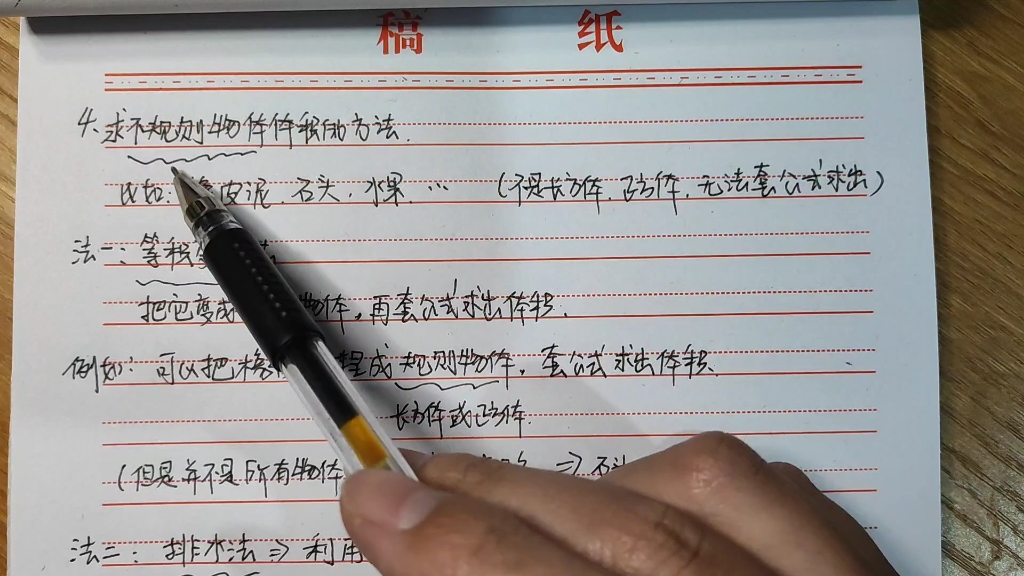 稿 纸
4、求不规则物体体积的方法.
比如: 皮泥、石头、水果、… (不是长方体、正方体、无法套公式求出)
法一: 等积
把它变成 物体,再套公式求出体积.
例如: 可以把橡 捏成规则物体,套公式求出体积.
长方体或正方体.
(但是并不是所有物体 ⇒ 石
法二: 排水法⇒利用